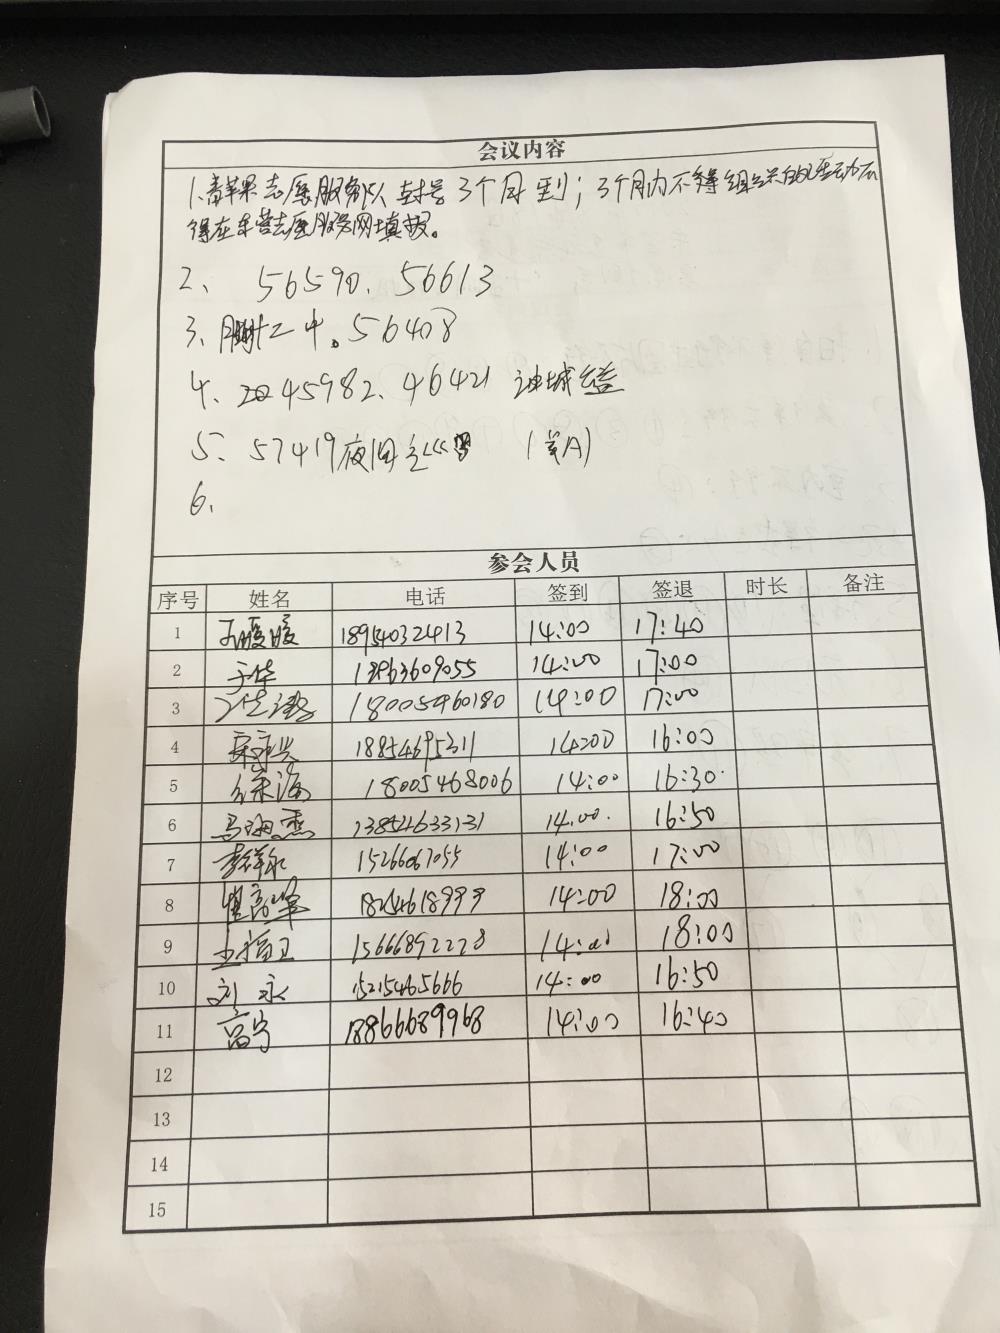 会议内容
1.青苹果志愿服务队封号3个月到；3个月内不得组织的活动不
得在东营志愿服务网填报。
2、 56590、56613
3、胜二中。56408
4、45982、46421 油城
5、57419夜
6、
参会人员
序号 姓名 电话 签到 签退 时长 备注
1 暖暖 18954032413 14:00 17:40
2 于华 13963609055 14:00 17:00
3 18005460180 14:00 17:00
4 18854695311 14:00 16:00
5 徐海 18005468006 14:00 16:30
6 马海燕 13854633131 14:00. 16:50
7 李祥永 1526667055 14:00 17:00
8 18254618999 14:00 18:00
9 15666892228 14:00 18:00
10 刘永 15215465666 14:00 16:50
11 高宁 18866689968 14:00 16:40
12
13
14
15